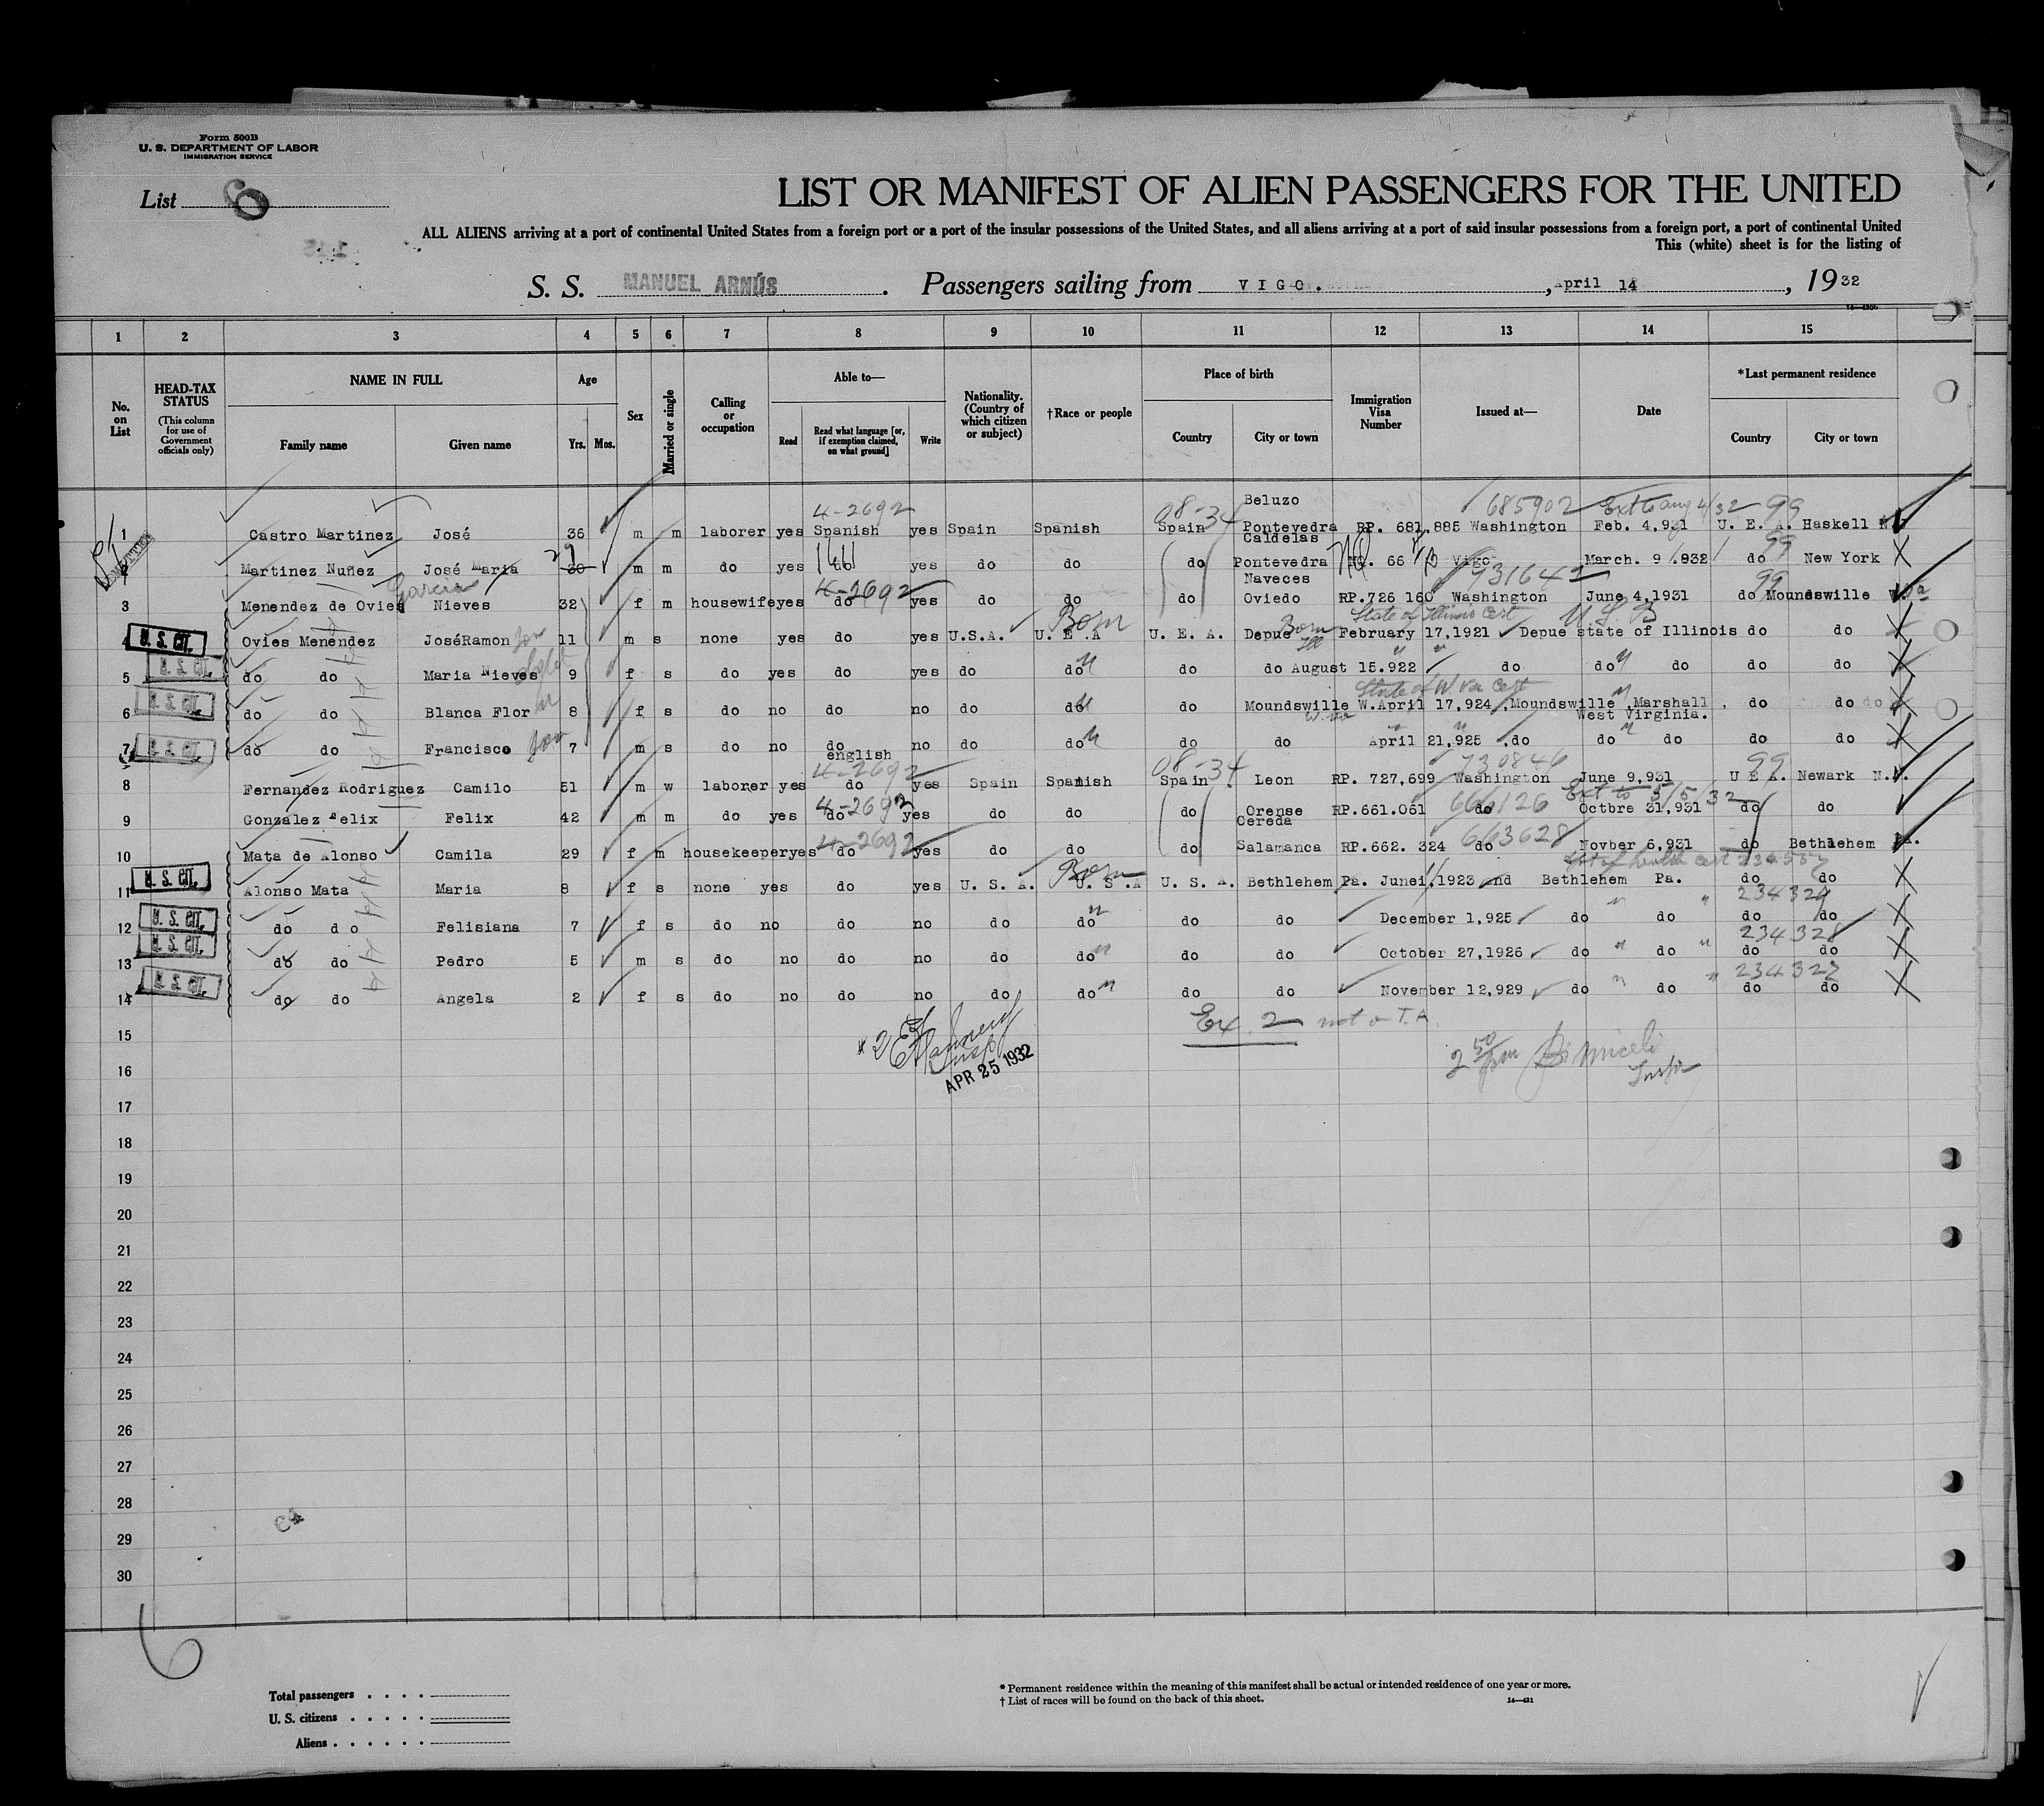 Form 500B
U. S. DEPARTMENT OF LABOR
IMMIGRATION SERVICE
List 6
LIST OR MANIFEST OF ALIEN PASSENGERS FOR THE UNITED
ALL ALIENS arriving at a port of continental United States from a foreign port or a port of the insular possessions of the United States, and all aliens arriving at a port of said insular possessions from a foreign port, a port of continental United
This (white) sheet is for the listing of
S. S. MANUEL ARNÚS. Passengers sailing from VIGO. , April 14, 1932
1 2 3 4 5 6 7 8 9 10 11 12 13 14 15
No. on List
HEAD-TAX STATUS
(This column for use of Government officials only)
NAME IN FULL
Family name Given name
Age
Yrs. Mos.
Sex
Married or single
Calling or occupation
Able to—
Read
Read what language [or, if exemption claimed, on what ground]
Write
Nationality. (Country of which citizen or subject)
†Race or people
Place of birth
Country City or town
Immigration Visa Number
Issued at—
Date
*Last permanent residence
Country City or town
4-2692 08-34 Beluzo 685902 Ext to aug 4/32 99
1 Castro Martinez José 36 m m laborer yes Spanish yes Spain Spanish Spain Pontevedra RP. 681,885 Washington Feb. 4,931 U. E. A. Haskell N.J
29 Caldelas 99
2 Martinez Nuñez José Maria 30 m m do yes do yes do do do Pontevedra 66 Vigo March. 9 .832 do New York
Garcia 4-2692 Naveces 731642 99
3 Menendez de Ovies Nieves 32 f m housewife yes do yes do do do Oviedo RP.726 160 Washington June 4,1931 do Moundswille W.Va
Born Born Ill State of Illinois Cert U.S.B
4 U. S. CIT. Ovies Menendez JoséRamon 11 m s none yes do yes U.S.A. U. E .A U. E. A. Depue February 17,1921 Depue state of Illinois do do
5 U. S. CIT. do do Maria Nieves 9 f s do yes do yes do do do do August 15.922 do do do do do
State of W Va Cert
6 U. S. CIT. do do Blanca Flor 8 f s do no do no do do do Moundswille W.April 17,924 ,Moundswille ,Marshall , do do
W. Va West Virginia.
7 U. S. CIT. do do Francisco 7 m s do no do no do do do do April 21,925 ,do do do do do
english
4-2692 08-34 730846 99
8 Fernandez Rodriguez Camilo 51 m w laborer yes do yes Spain Spanish Spain Leon RP. 727,699 Washington June 9,931 U E A. Newark N.J.
4-2692 666126 Ext to 5/5/32
9 Gonzalez Felix Felix 42 m m do yes do yes do do do Orense RP.661.061 do Octbre 31,931 do do
4-2692 Cereda 663628
10 Mata de Alonso Camila 29 f m housekeeper yes do yes do do do Salamanca RP.662. 324 do Novber 6,931 do Bethlehem Pa.
Born
11 U. S. CIT. Alonso Mata Maria 8 f s none yes do yes U. S. A. U. S .A U. S. A. Bethlehem Pa. June 1,1923 nd Bethlehem Pa. do do
12 U. S. CIT. do do Felisiana 7 f s do no do no do do do do December 1,925 do do do do
234328
13 U. S. CIT. do do Pedro 5 m s do no do no do do do do October 27,1926 do do do do
234327
14 U. S. CIT. do do Angela 2 f s do no do no do do do do November 12,929 do do do do
15 Ex. 2 not o T.A
16 APR 25 1932 2 50 pm Insp
17
18
19
20
21
22
23
24
25
26
27
28
29
30
6
Total passengers
U. S. citizens
Aliens
* Permanent residence within the meaning of this manifest shall be actual or intended residence of one year or more.
† List of races will be found on the back of this sheet.
14—431